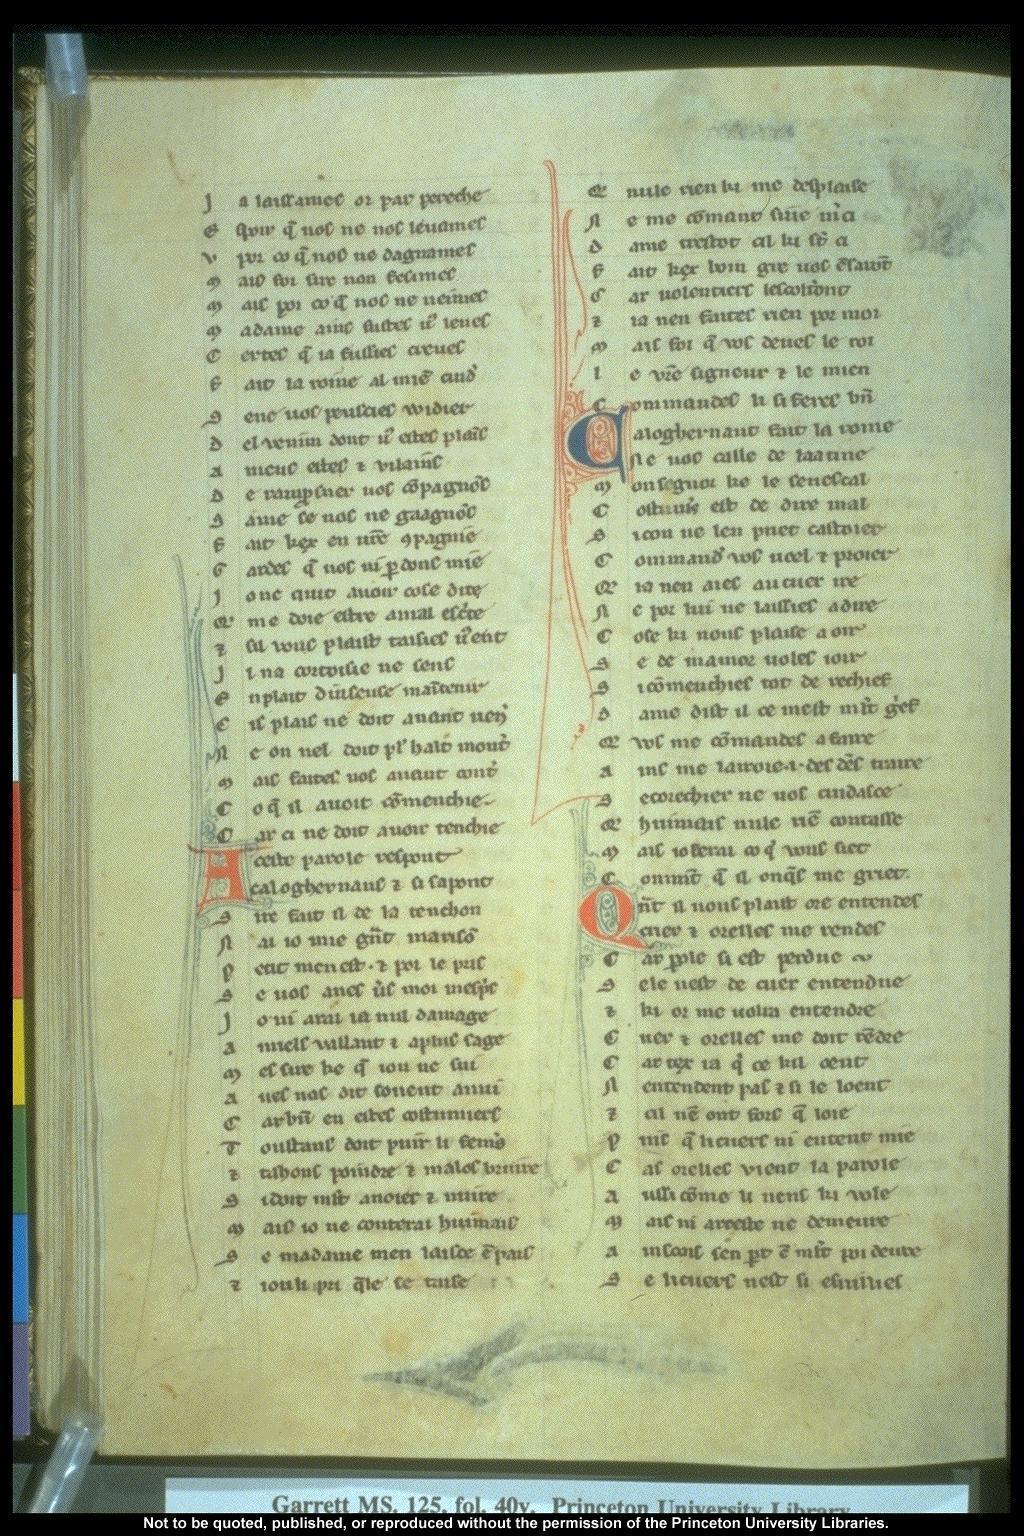 J a laissames or par pereche
E spoir q̃ nos ne nos leuames
v por co q̃ nos ne dagnames
M ais foi sire non fesimes
M ais por co q̃ nos ne ueimes
M adame ains fustes u9 leues
C ertes q̃ ia fussies creues
F ait la roine al mie cuid'
S ene uos peussies widier
D el uenim dont u9 estes plais
A nieus estes ⁊ vilains
D e ramposner uos cõpagnõs
D ame se nos ne gaagnõs
F ait kex en ur̃e 9pagnie
G ardes q̃ nos ni ꝑdons mie
J onc quit auoir cose dite
Q me doie estre a mal esc'te
⁊ sil vous plaist taisies u9 ent
J l na cortoisie ne sens
E nplait duiseuse maitenir
C is plais ne doit auant uen'
N e on nel doit pl9 halt mont'
M ais faites uos auant cont'
C o q̃ il auoit cõmenchie
C ar ci ne doit auoir tenchie
A ceste parole respont
caloghernans ⁊ si sapont
S ire fait il de la tenchon
N ai io mie gñt marisõ
P etit men est · ⁊ poi le pris
S e uos aues u's moi mesp's
J o ni arai ia nul damage
A miels vallant ⁊ a plus sage
M es sire ke q̃ iou ne sui
A ues uos dit souent anui
C ar bñ en estes costumiers
T oustans doit puir li femiers
⁊ tahons poindre ⁊ malos bruire
S i doit mlt anoier ⁊ nuire
M ais io ne conterai huimais
S e madame men laisce ẽ pais
⁊ iou li pri q̃le se taise
Q nule rien ki me desplaise
N e me cõmant siue m'ci
D ame trestot cil ki st' ci
F ait kex boin gre uos ẽ sauõt
C ar uolentiers lescolt'ont
⁊ ia nen faites rien por moi
M ais foi q̃ vos deues le roi
L e vr̃e signour ⁊ le mien
C ommandes li si feres bñ
Caloghernant fait la roine
Ne uos caille de laatine
M onsegnor ke le senescal
C ostumis est de dire mal
S i con ne len puet castoier
C ommand' vos ueel ⁊ proier
Q ia nen aies au cuer ire
N e por lui ne laissies a dire
C ose ki nous plaise a oir
S e de mamor uoles ioir
S i cõmenchies tot de rechief
D ame dist il ce mest mlt g'ef
Q vos me cõmandes a faire
A ins me lairoie · i · des dẽs traire
S e corechier ne uos cuidasce
Q huimais nule riẽ contasse
M ais io ferai co q' vous siet
C oment q̃ il onq̃s me griet
Qñt il nous plaist ore entendes
Cuer ⁊ orelles me rendes
C ar ꝑole si est perdue
S ele nest de cuer entendue
⁊ ki or me uolra entendre
C uer ⁊ orelles me doit rẽdre
C ar tex ia q' ce kil oent
N entendent pas ⁊ si le loent
⁊ cil nẽ ont fors q̃ loie
P uis q̃ licuers ni entent mie
C as orelles vient la parole
A ussi cõme li uens ki vole
M ais ni areste ne demeure
A inscois sen ꝑt ẽ mlt poi deure
S e licuers nest si esuillies
Garrett MS. 125, fol. 40v. Princeton University Library
Not to be quoted, published, or reproduced without the permission of the Princeton University Libraries.